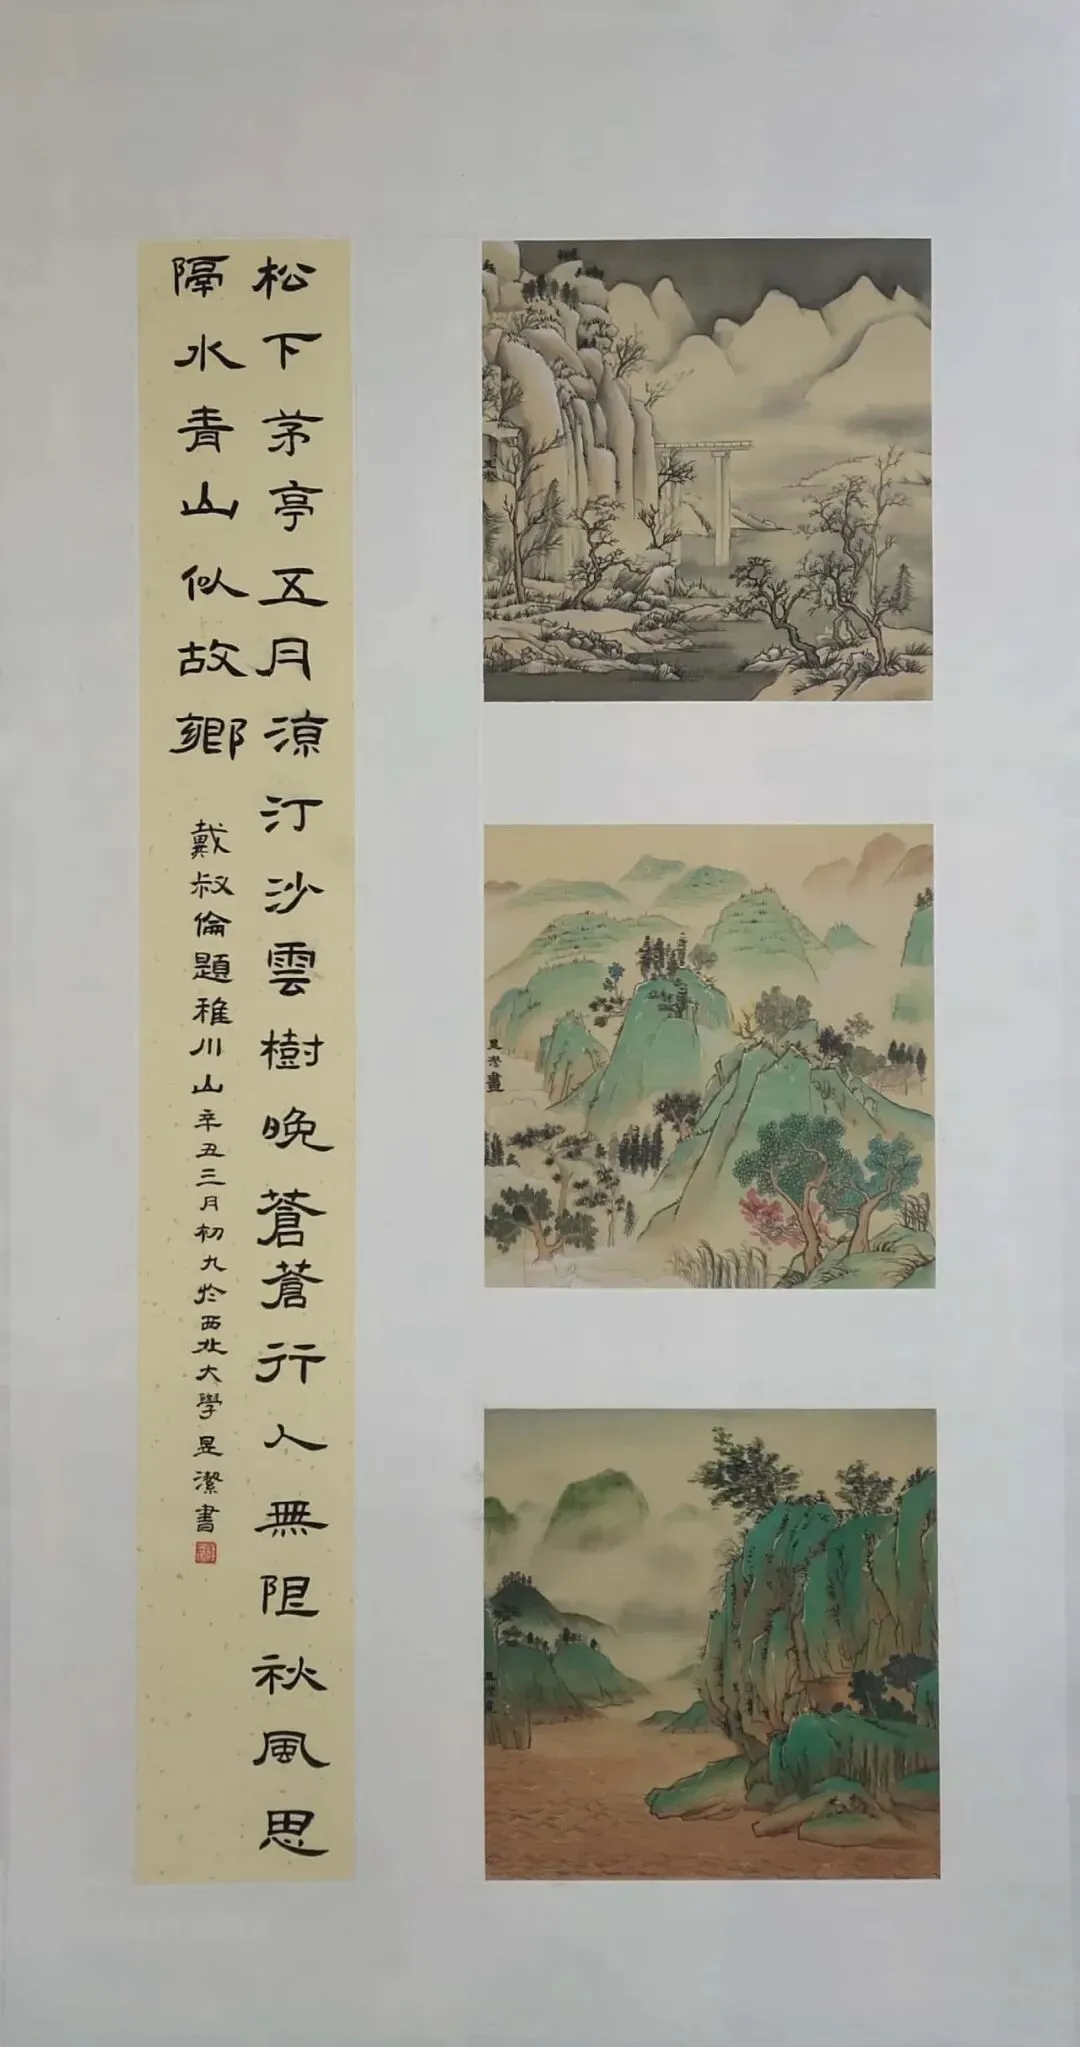 松下茅亭五月涼汀沙雲樹晚蒼蒼行人無阻秋風思
隔水青山似故鄉
戴叔倫題稚川山辛丑三月初九於西北大學昱潔書
昱潔畫